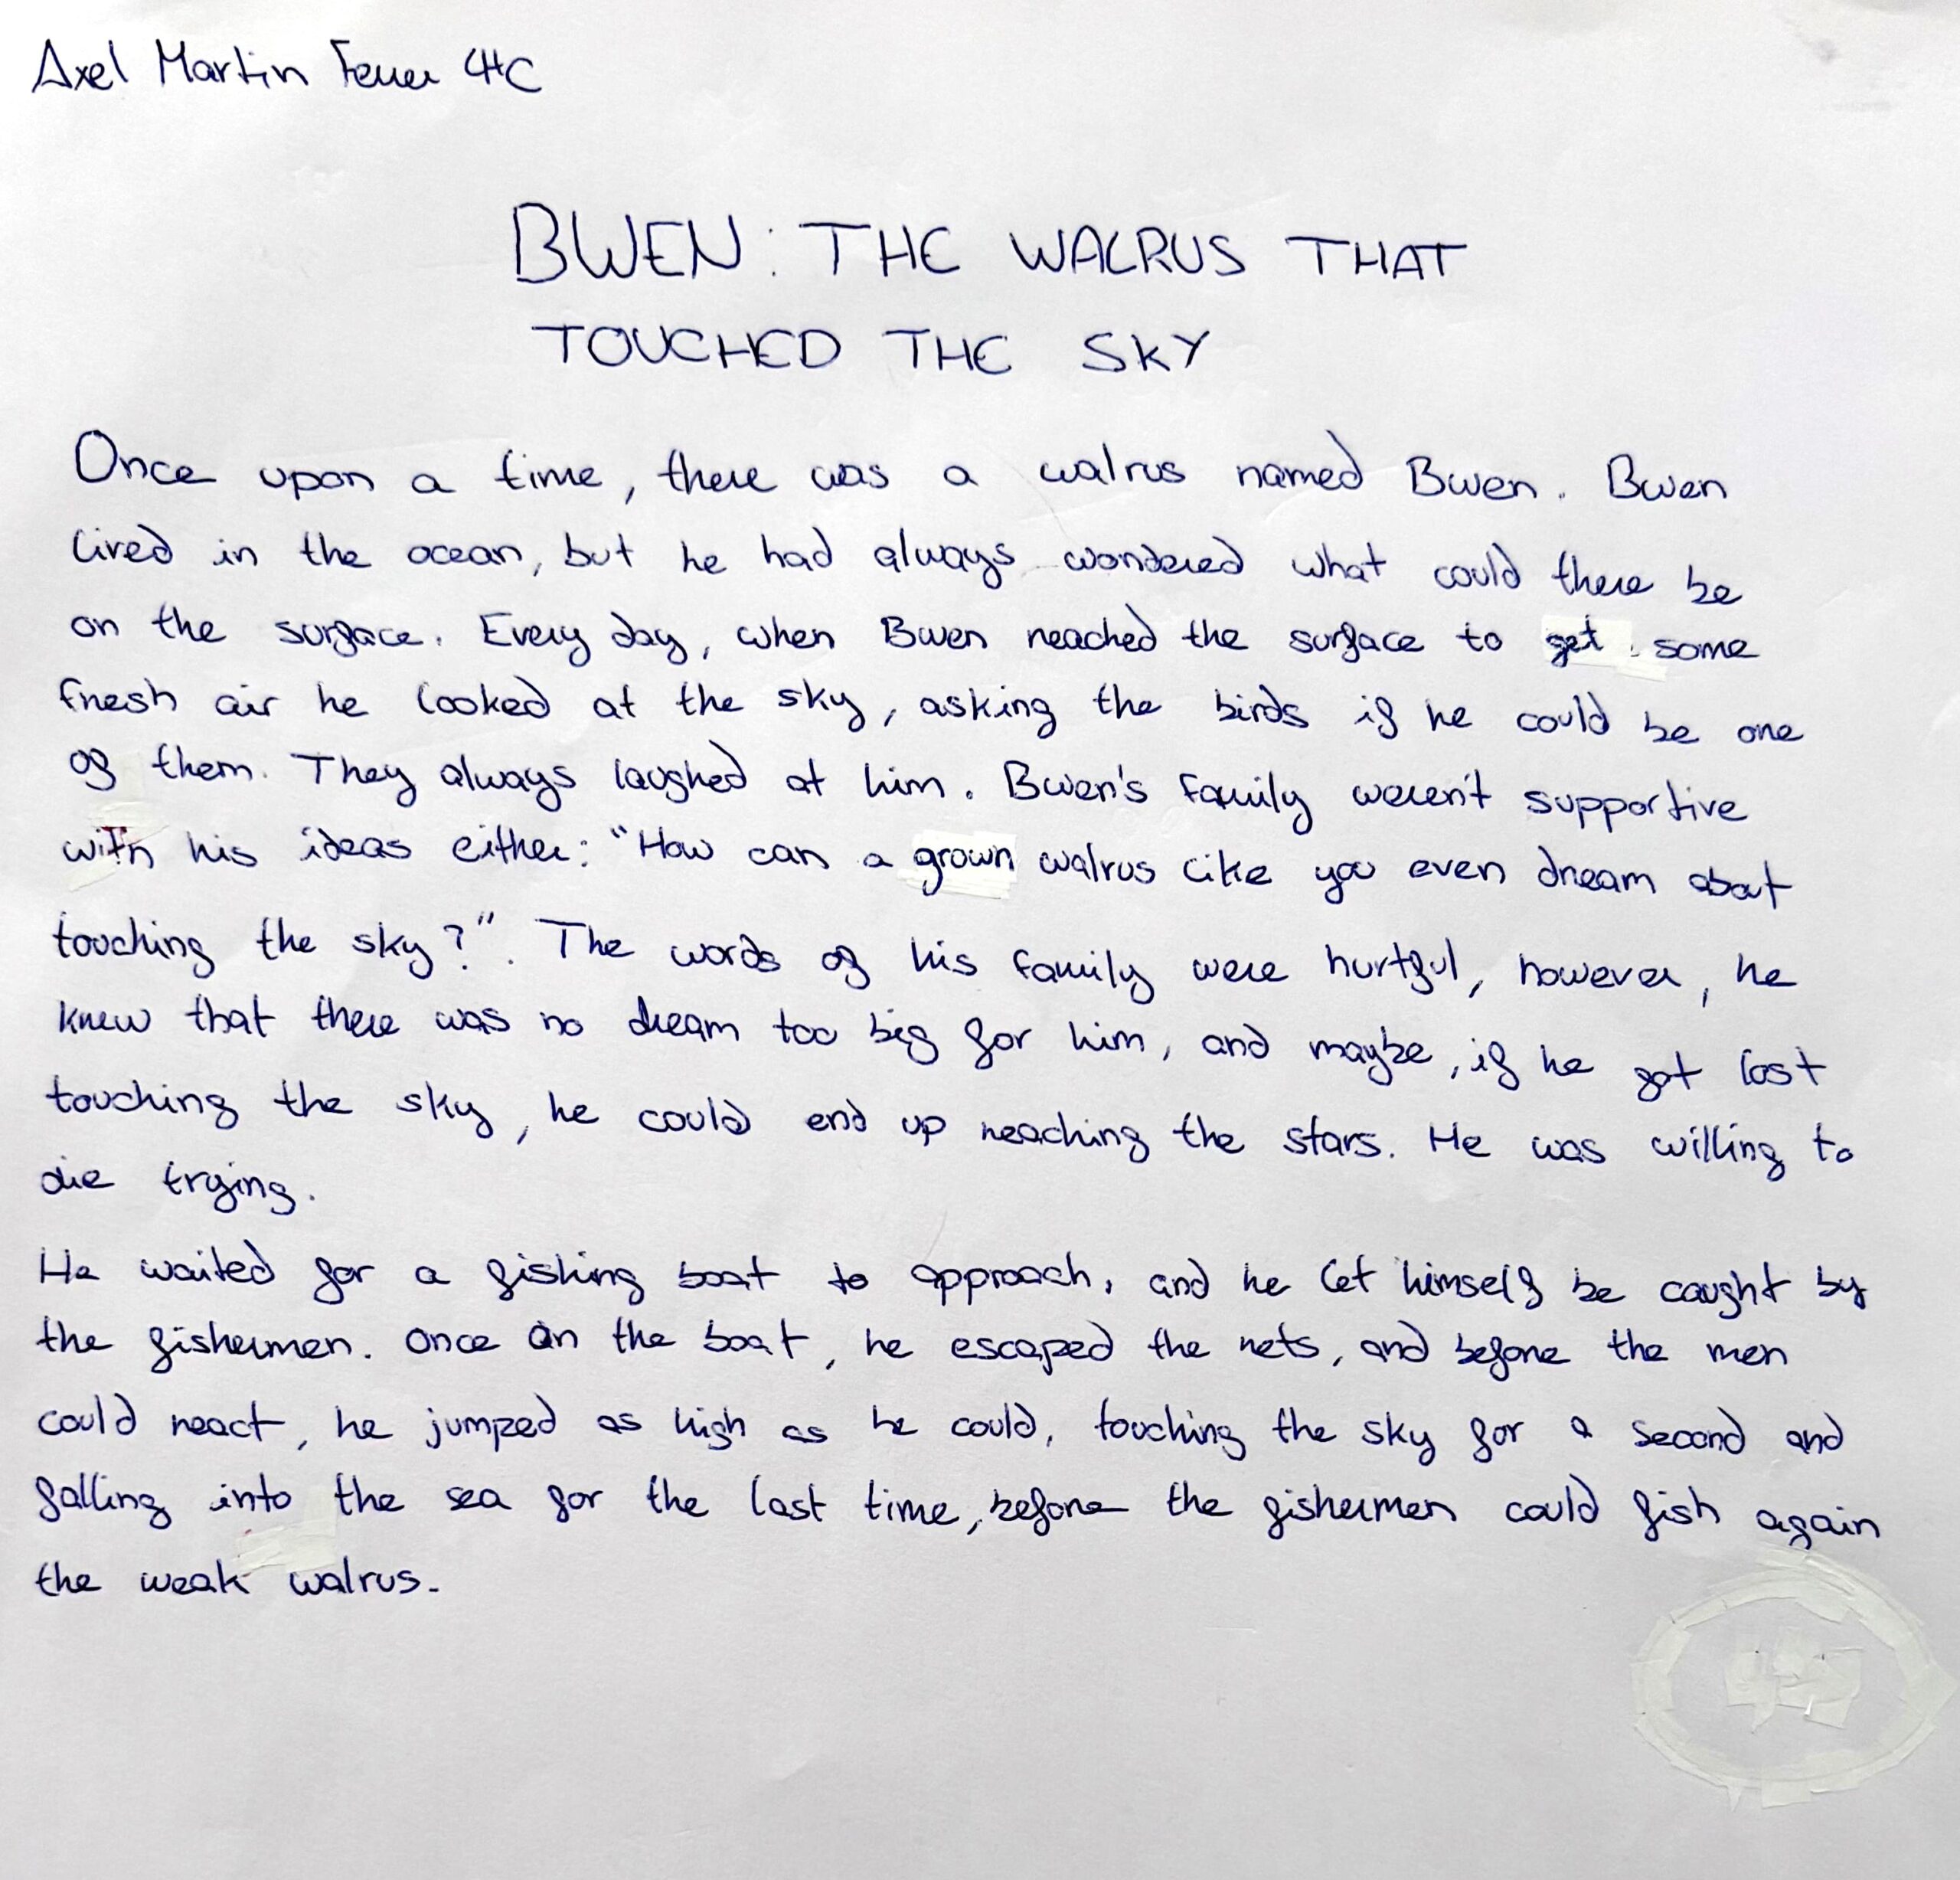 Axel Martin 4tC
BWEN: THE WALRUS THAT
TOUCHED THE SKY
Once upon a time, there was a walrus named Bwen. Bwen
lived in the ocean, but he had always wondered what could there be
on the surface. Every day, when Bwen reached the surface to get some
fresh air he looked at the sky, asking the birds if he could be one
of them. They always laughed at him. Bwen's family weren't supportive
with his ideas either: "How can a grown walrus like you even dream about
touching the sky?". The words of his family were hurtful, however, he
knew that there was no dream too big for him, and maybe, if he got lost
touching the sky, he could end up reaching the stars. He was willing to
die trying.
He waited for a fishing boat to approach, and he let himself be caught by
the fishermen. Once on the boat, he escaped the nets, and before the men
could react, he jumped as high as he could, touching the sky for a second and
falling into the sea for the last time, before the fishermen could fish again
the weak walrus.